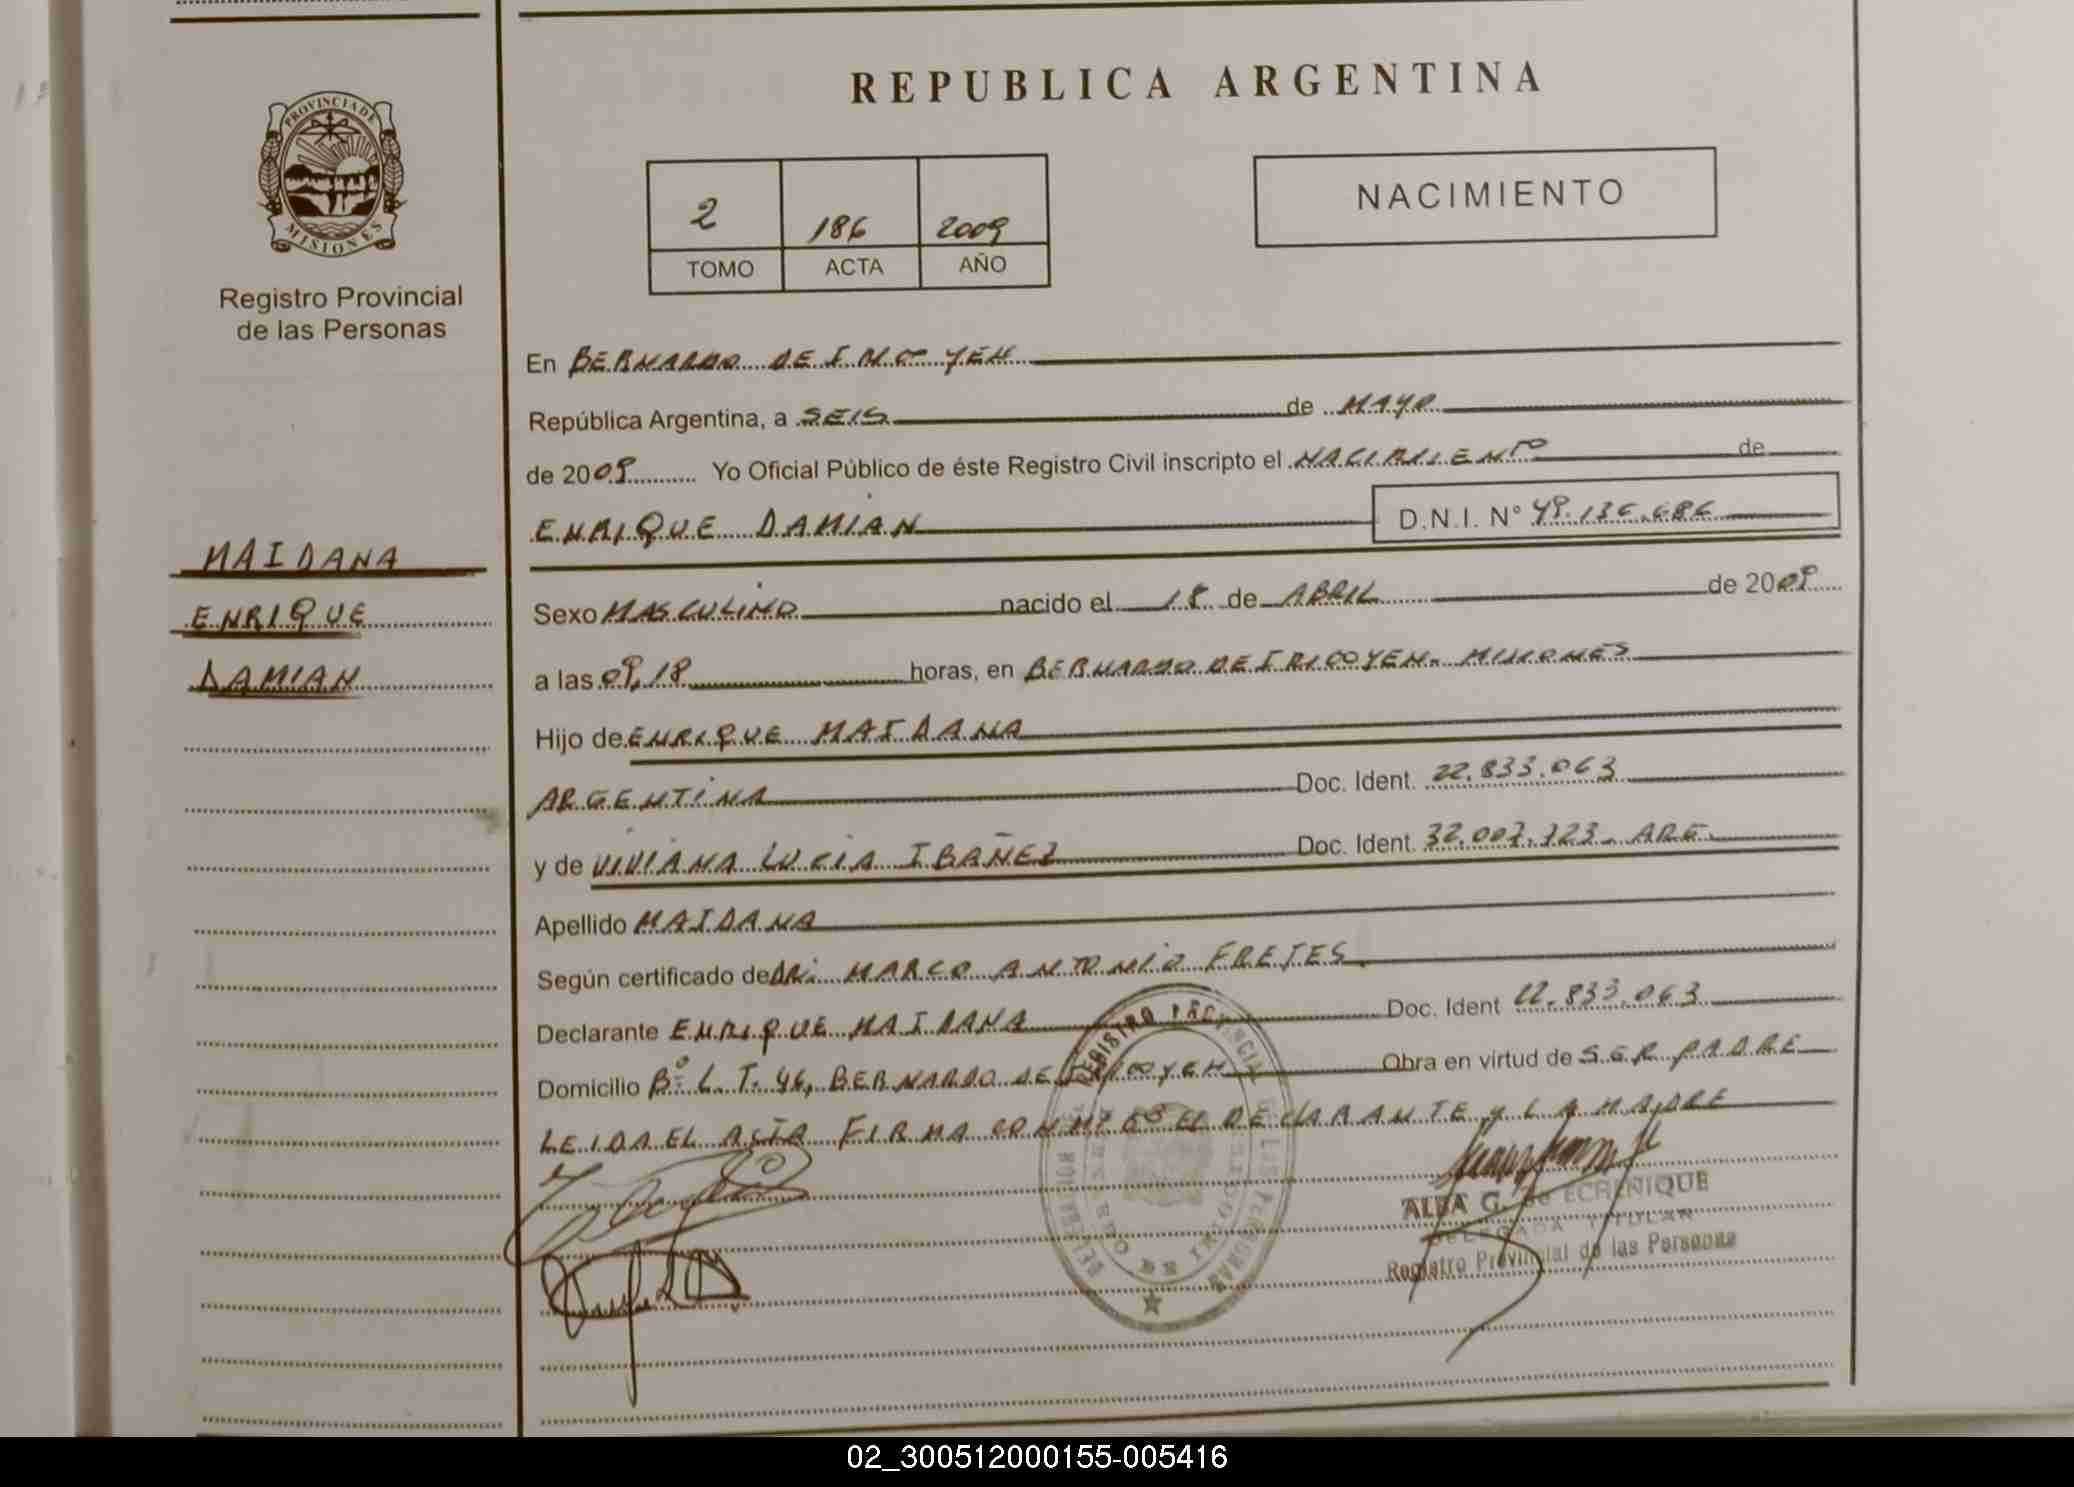 REPUBLICA ARGENTINA
PROVINCIA DE
MISIONES
Registro Provincial
de las Personas
2 186 2009
TOMO ACTA AÑO
NACIMIENTO
En BERNARDO DE IRIGOYEN
República Argentina, a SEIS de MAYO
de 2009 Yo Oficial Público de éste Registro Civil inscripto el NACIMIENTO de
ENRIQUE DAMIAN D.N.I. N° 49.136.686
MAIDANA
ENRIQUE
DAMIAN
Sexo MASCULINO nacido el 18 de ABRIL de 2009
a las 09,18 horas, en BERNARDO DE IRIGOYEN - MISIONES
Hijo de ENRIQUE MAIDANA
ARGENTINA Doc. Ident. 22.833.063
y de VIVIANA LUCIA IBAÑEZ Doc. Ident. 32.007.723 - ARG.
Apellido MAIDANA
Según certificado de DR: MARCO ANTONIO FRETES
Declarante ENRIQUE MAIDANA Doc. Ident 22.833.063
Domicilio Bº L. T. 46, BERNARDO DE IRIGOYEN Obra en virtud de SER PADRE
LEIDA EL ACTA FIRMA CONMIGO EL DECLARANTE Y LA MADRE
REGISTRO PROVINCIAL DE LAS PERSONAS
ALBA G. de ECHENIQUE
DELEGADA TITULAR
Registro Provincial de las Personas
02_300512000155-005416